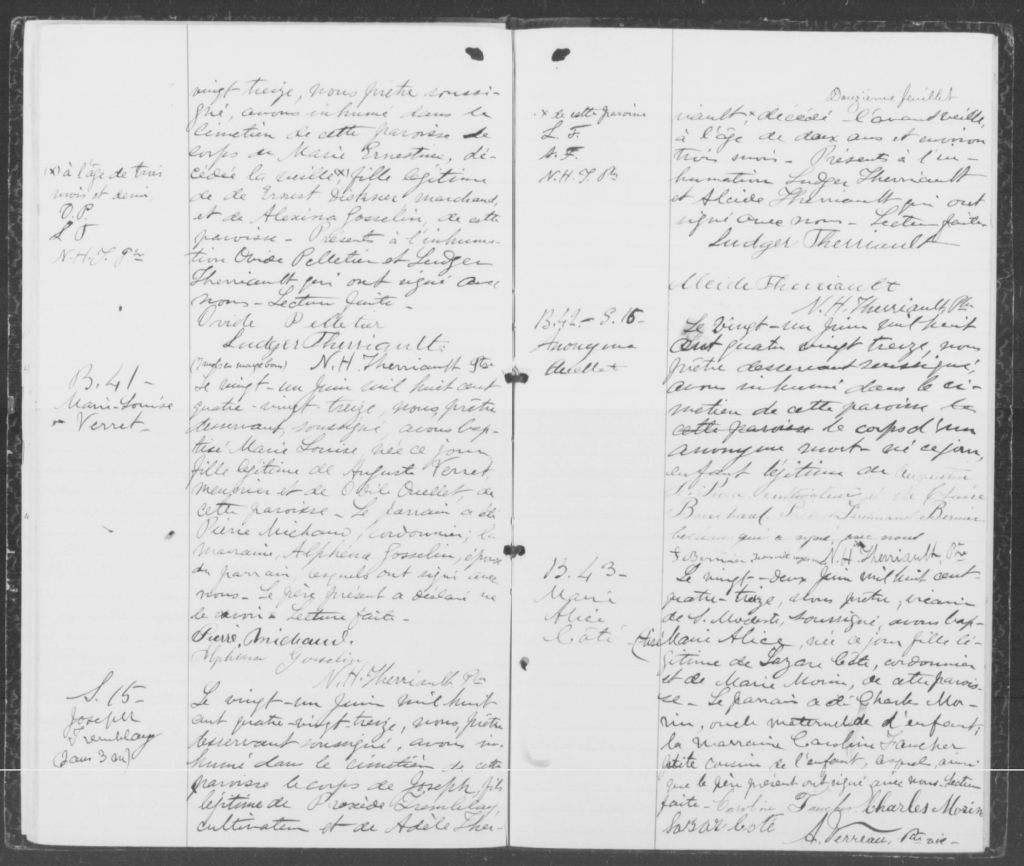 vingt treize, nous prêtre soussi-
gné, avons inhumé dans le
cimetière de cette paroisse le
corps de Marie Ernestine, dé-
cédée la veille (x) fille légitime
de de Ernest Dishner marchand,
et de Alexina Gosselin, de cette
paroisse - Présents à l'inhuma-
tion Ovide Pelletier et Ludger
Therriault qui ont signé avec
nous - Lecture faite -
Ovide Pelletier
Ludger Therriault
N. H. Therriault Ptre
(x) à l'âge de trois
mois et demi.
O. P.
L T
N. H. T. Ptre
B. 41 -
Marie-Louise
Verret -
Le vingt-un Juin mil huit cent
quatre-vingt treize, nous prêtre
desservant soussigné avons bap-
tisé Marie Louise, née ce jour,
fille légitime de Auguste Verret,
meunier et de Ouellet, de
cette paroisse - Le parrain a été
Pierre Michaud, cordonnier; la
marraine, Alphéna Gosselin, épouse
du parrain, lesquels ont signé avec
nous - Le père présent a déclaré ne
le savoir - Lecture faite -
Pierre Michaud.
Alphéna Gosselin
N. H. Therriault Ptre
S. 15 -
Joseph
Tremblay
(2 ans 3 m)
Le vingt-un Juin mil huit
cent quatre-vingt-treize, nous, prêtre
desservant soussigné, avons in-
humé dans le cimetière de cette
paroisse le corps de Joseph, fils
légitime de Praxède Tremblay,
cultivateur et de Adèle Ther-
Douzième feuillet
x de cette paroisse
L. T.
A. T.
N. H. T. Ptre
riault, x décédé l'avant veille,
à l'âge de deux ans et environ
trois mois - Présents à l'in-
humation Ludger Therriault
et Alcide Therriault qui ont
signé avec nous - Lecture faite
Ludger Therriault
Alcide Therriault
N. H. Therriault, Ptre
B. 42 - S. 16 -
Anonyme
Ouellet
Le vingt-un Juin mil huit
cent quatre vingt treize, nous
prêtre desservant soussigné,
avons inhumé dans le ci-
metière de cette paroisse le
cette paroisse le corps d'un
anonyme mort-né ce jour,
enfant légitime de
cultivateur et de
Bouchard, Ferdinand Bernier
bedeau qui a signé avec nous
F Bernier N. H. Therriault, Ptre
B. 43 -
Marie
Alice
Côté
Le vingt-deux Juin mil huit cent
quatre-treize, nous prêtre, vicaire
de S. Modeste, soussigné, avons bap-
(tisé) Marie Alice, née ce jour fille lé-
gitime de Lazare Côté, cordonnier
et de Marie Morin, de cette parois-
se - Le parrain a été Charles Mo-
rin, oncle maternel de l'enfant;
la marraine Caroline Faucher,
petite cousine de l'enfant, lesquels ainsi
que le père présent ont signé avec nous. Lecture
faite - Caroline Faucher Charles Morin
Lazar Coté
A. Verreau, Ptre vic -